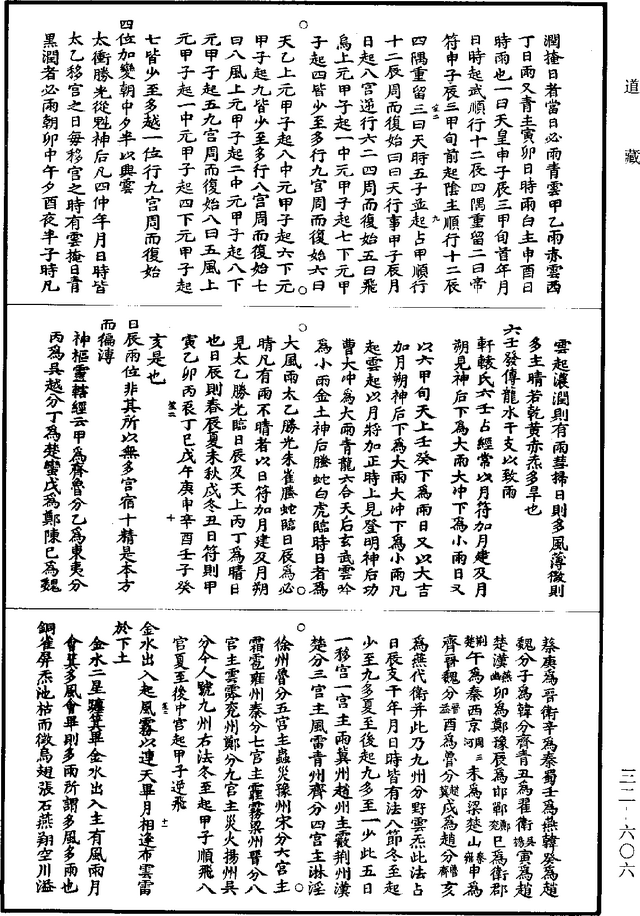 道藏
潤掩日者當日必雨青雲甲乙雨赤雲西
丁日雨又青主寅卯日時雨白主申酉日
時雨也一曰天皇申子辰三甲旬首年月
日時起武順行十二夜四隅重留二曰帝
符申子辰三甲旬前起陰主順行十二辰
四隅重留三曰天時五子並起占甲順行
十二辰周而復始四曰天行事甲子辰月
日起八宮逆行六二四周而復始五曰飛
鳥上元甲子起一中元甲子起七下元甲
子起四皆少至多行九宮周而復始六曰
天乙上元甲子起八中元甲子起六下元
甲子起九皆少至多行八宮周而復始七
曰八風上元甲子起二中元甲子起八下
元甲子起五九宮周而復始八曰五風上
元甲子起一中元甲子起四下元甲子起
七皆少至多越一位行九宮周而復始
四位加變朝中夕半以興雲
太衝勝光從魁神后凡四仲年月日時皆
太乙移宮之日每移宮之時有雲掩日青
黑潤者必雨朝卯中午夕酉夜半子時凡
雲起濃潤則有雨彗掃日則多風薄微則
多主晴若乾黃赤炁多旱也
六壬發傳龍水干支以致雨
軒轅氏六壬占經常以月符加月建及月
朔見神后下為大雨大冲下為小雨日又
以六甲旬天上壬癸下為雨日又以大吉
加月朔神后下為大雨大冲下為小雨凡
起雲起以月將加正時上見登明神后功
曹大冲為大雨青龍六合天后玄武雲吟
為小雨金土神后螣蛇白虎臨時日者為
大風雨太乙勝光朱雀螣蛇臨日辰為必
晴凡有雨不晴者以日符加月建及月朔
見太乙勝光臨日辰及天上丙丁為晴日
也日辰則春辰夏未秋戌冬丑日符則甲
寅乙卯丙辰丁巳戊午庚申辛酉壬子癸
亥是也
日辰兩位非其所以無多宮宿十精是本方
而徧溥
神樞靈轄經云甲為齊魯分乙為東夷分
丙為吳越分丁為楚蠻戊為鄭陳己為魏
蔡庚為晉衛辛為秦蜀壬為燕韓癸為趙
魏分子為韓分齊青丑為翟衛吳揚寅為趙
楚漢燕幽卯為鄭豫辰為邯鄲鄭兗巳為衛郡
荆楚午為秦西京周三河未為梁楚山秦雍申為
齊晉魏分晉益酉為魯分趙冀戌為趙分魯徐亥
為燕代衛并此乃九州分野雲炁此法占
日辰支干年月日時皆有法八節冬至起
少至九多夏至後起九多至一少此五日
一移宮一宮主雨冀州趙州主霰荆州漢
楚分三宮主風雷青州齊分四宮主淋淫
徐州魯分五宮主蟲災豫州宋分六宮主
霜雹雍州秦分七宮主霾霧梁州晉分八
宮主雲霧兗州鄭分九宮主災火揚州吳
分今人號九州右法冬至起甲子順飛八
宮夏至後中宮起甲子逆飛
金水出入起風霧以連天畢月相逢布雲雷
於下土
金水二星躔箕畢金水出入主有風雨月
會箕多風會畢則多雨所謂多風多雨也
銅雀屏炁池枯而微烏翅張石燕翔空川溢
三二—六〇六